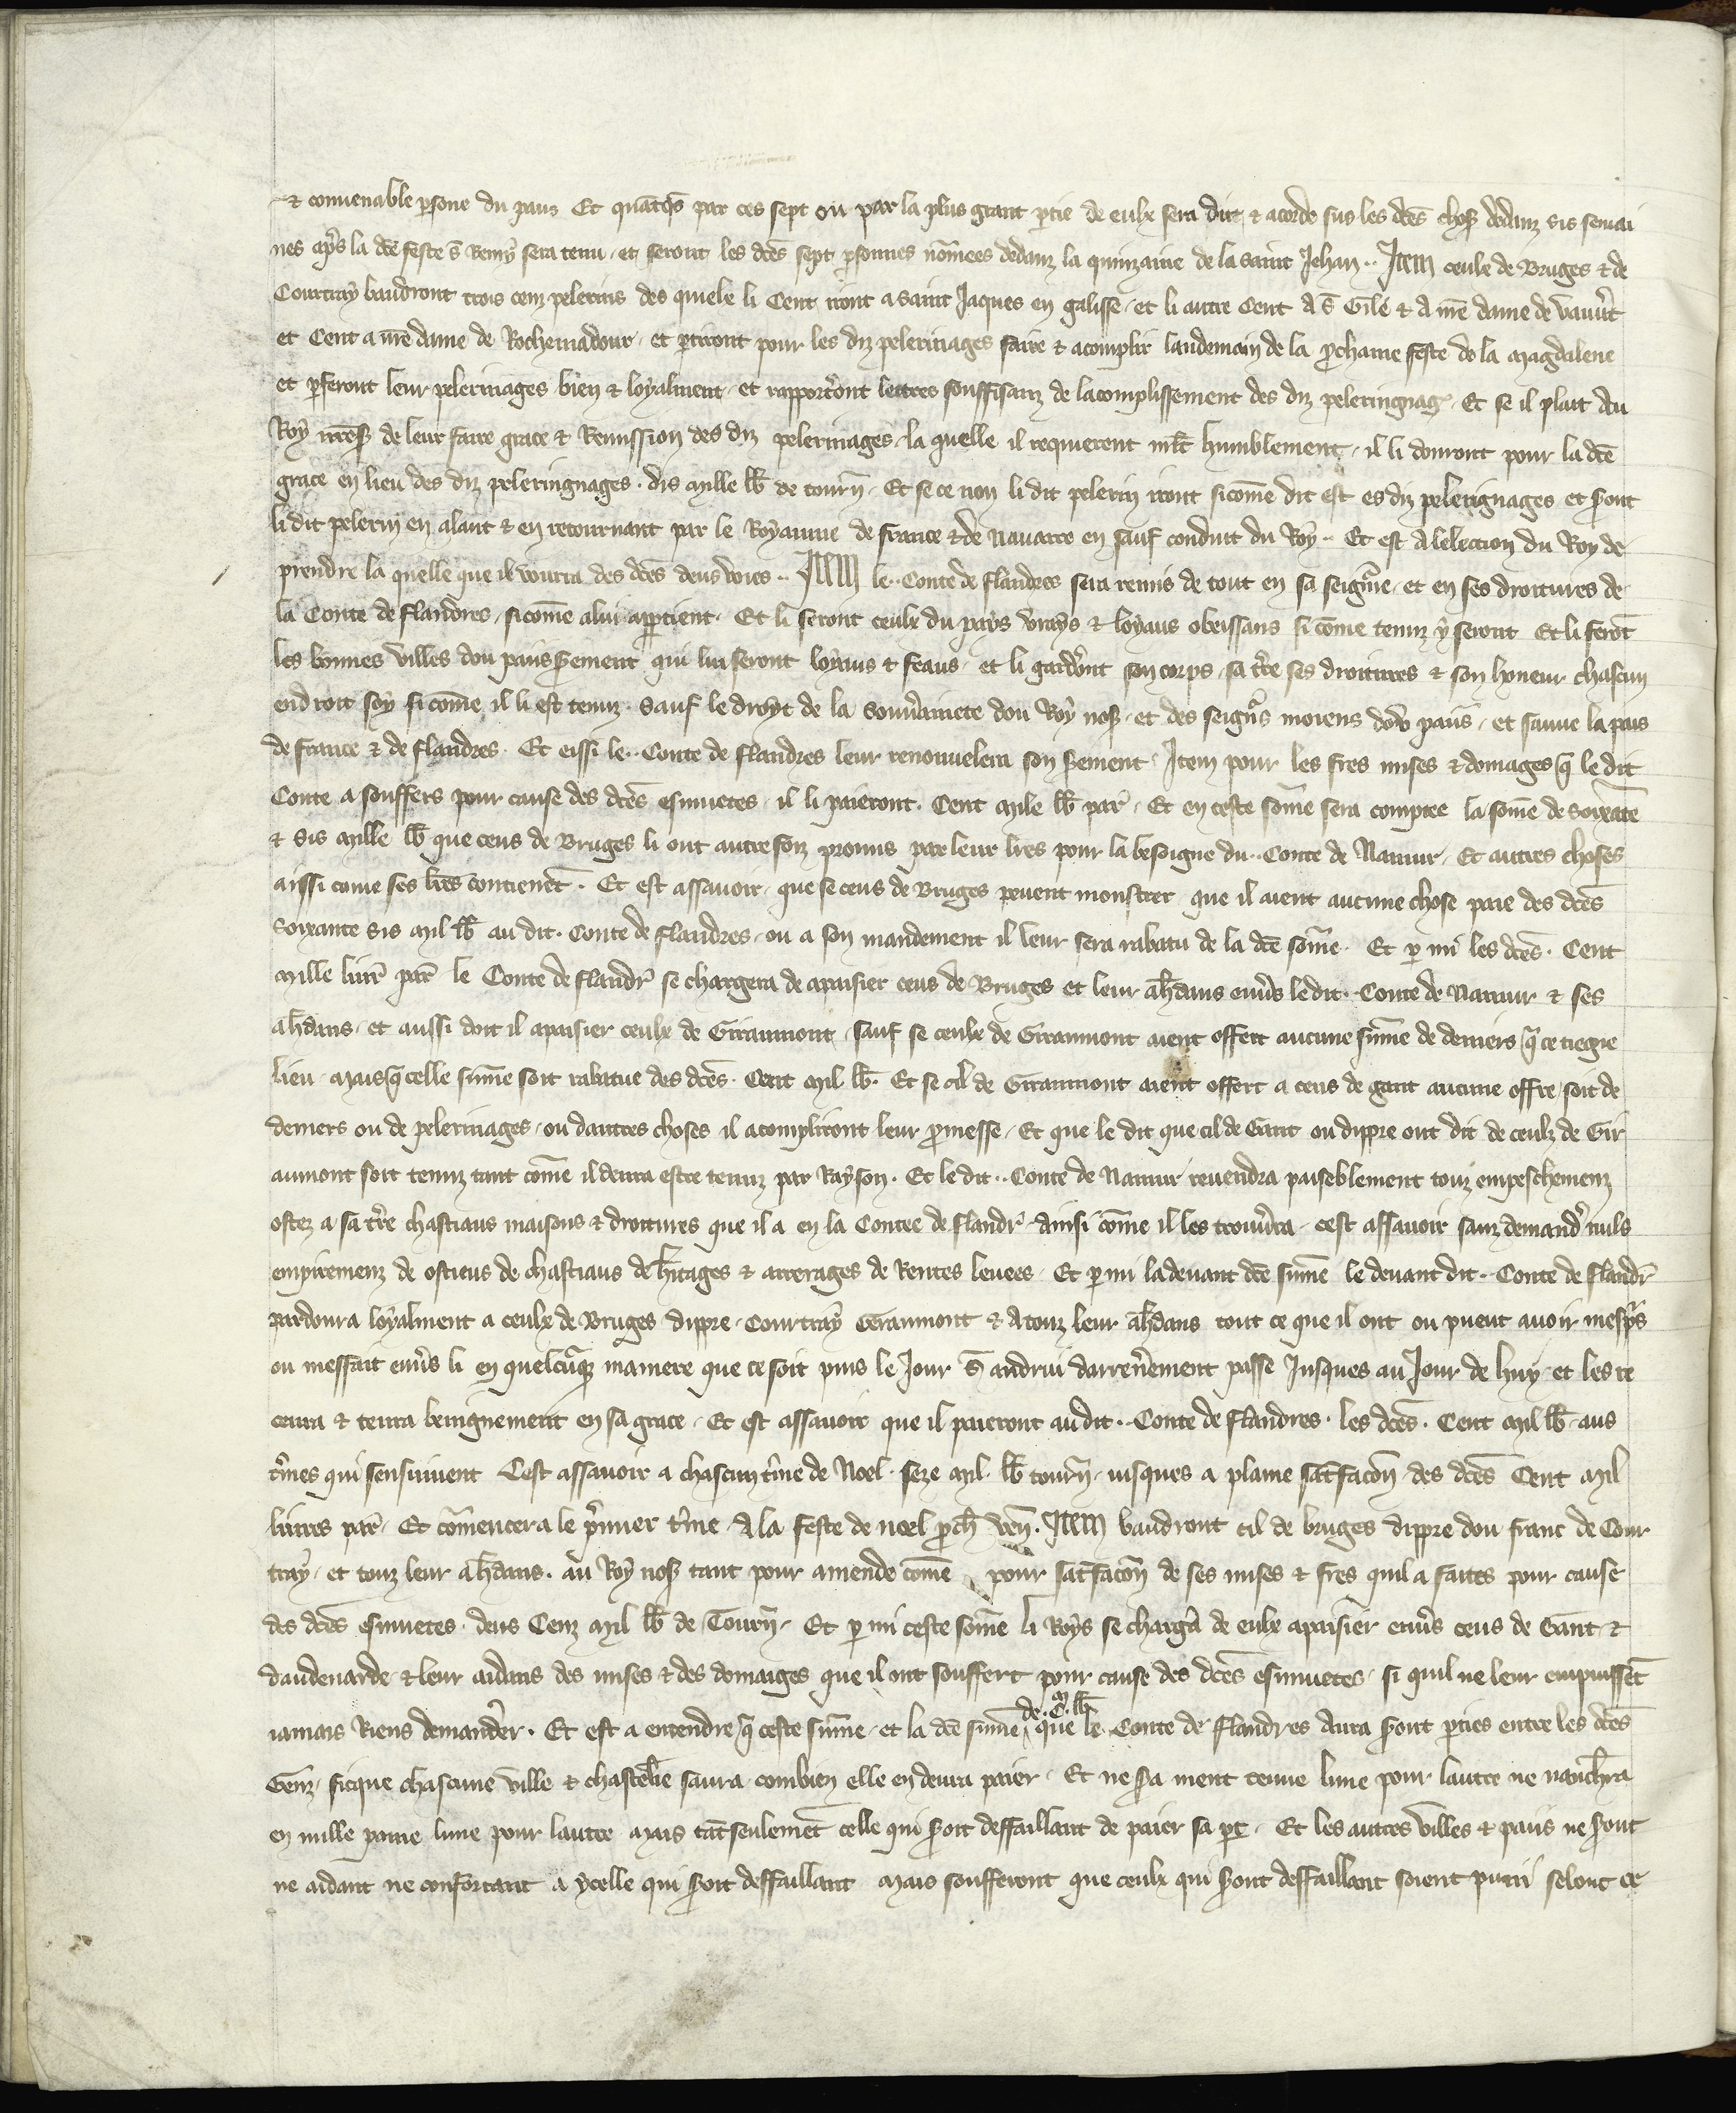 & conuenable psone du pais Et quātqs par ces sept ou par la plus grant ptie de eulx sera dit & acorde sus les dc̄es chos dedanz sis semai
nes apͥs la dc̄e feste s̄ Remy sera tenu. et seront les dc̄es sept psonnes nōmees dedanz la quinzainne de la saint Jehan.. Item ceulx de Bruges & de
Courtray baudront trois cenz pelerins des quielx li Cent iront a saint Jaques en galisse. et li autre Cent a s̄ Gile & a nr̄e dame de vauūt
et Cent a nr̄e dame de Rochemadour. et ptiront pour les diz pelerinages faire & acomplir landemain de la pchaine feste de la Magdalene
et pferont leur pelerinages bien & loyalment. et rapportōnt lettres souffisanz de lacomplissement des diz peleringnag. Et se il plait Au
Roy nr̄es de leur faire grace & Remission des diz pelerinages. la quelle il requierent ml̄t humblement. il li donront pour la dc̄e
grace en lieu des diz peleringnages. dis Mille lb̄ de tourn̄. Et se ce non li dit pelerin iront sicōme dit est es diz pelerignages et s̄ont
li dit pelerin en alant & en retournant par le Royaume de france & de Nauarre en sauf conduit du Roy.. Et est a lelection du Roy de
prendre la quelle que il vourra des dc̄es deus voies.. Item le.. Conte de flandres sera remis de tout en sa seign̄ie. et en ses droitures de
la Conte de flandres. sicōme a lui appartient. Et li seront ceulx du pays vrays & loyaus obeissans si cōme tenuz y seront Et li ferōt
les bonnes villes dou pais s̄ement qui lui seront loyaus & feaus. et li gardōnt son corps. sa tr̄e ses droitures & son honeur chascun
endroit soy sicōme il li est tenuz. Sauf le droyt de la souūainete dou Roy nos. et des seign̄s moiens dou pais. et sauue la pais
de france & de flandres. Et eissi le.. Conte de flandres leur renouuelera son s̄ement Item pour les fres mises & domages q̄ le dit
Conte a souffers pour cause des dc̄es esmuetes. il li paieront. Cent Mile lb̄ par̄. Et en ceste sōme sera comptee la sōme de Soixāte
& sis Mille lb̄ que ceus de Bruges li ont autresfoiz promis par leur lr̄es pour la besoigne du.. Conte de Namur. Et autres choses
aissi cume ses lr̄es contienēt. Et est assauoir. que se ceus de Bruges peuent monstrer que il aient aucune chose paie des dc̄es
Soixante sis Mil lb̄ au dit. Conte de flandres. ou a son mandement il leur sera rabatu de la dc̄e sōme. Et p mi les dc̄es. Cent
Mille liur̄ par̄ le Conte de flandr̄ se chargera de apaisier ceus de Bruges et leur ah̄dans enuūs le dit. Conte de Namur & ses
ah̄dans. et aussi doit il apaisier ceulx de Giraumont. Sauf se ceulx de Giraumont aient offert aucune sūme de deniers q̄ ce tiegne
lieu. Mais q̄ celle sūme soit rabatue des dc̄es. Cent Mil lb̄. Et se cil de Giraumont aient offert a ceus de gant aucune offre soit de
deniers ou de pelerinages. ou dautres choses il acompliront leur pmesse. Et que le dit que cil de Gant ou dippre ont dit de ceulz de Gir
aumont soit tenuz tant cōme il deura estre tenuz par Rayson. Et le dit.. Conte de Namur reuendra paiseblement touz empeschemenz
ostez a sa tr̄e chastiaus maisons & droitures que il a en la Contee de flandr̄. Ainsi cōme il les trouūra. cest assauoir sanz demand nuls
empiremenz de ostieus de chastiaus de h̄itages & arrerages de Rentes leuees. Et p mi la deuant dc̄e sūme le deuant dit.. Conte de flandr̄
pardonra loyalment a ceulx de Bruges dippre. Courtray Geraumont & a touz leur ah̄dans tout ce que il ont ou puent auoir mesp̄s
ou messait enuūs li en quelcūq maniere que ce soit puis le Jour S̄ andriu darren̄ement passe Jusques au Jour de huy. et les re
ceura & tenra benignement en sa grace. Et est assauoir que il paieront au dit.. Conte de flandres. les dc̄es. Cent Mil lb̄. aus
t̄mes qui sensuiuent Cest assauoir a chascun t̄me de Noel. seze Mil. lb̄ tourn̄. iusques a plaine satfacōn des dc̄es Cent Mil
liures par̄. Et cōmencera le p̄mier t̄me. a la feste de noel pch̄ ven̄. Item baudront cil de bruges dippre dou franc de Cour
tray. et touz leur ah̄dans. au Roy nos tant pour amende cōme pour satfacōn de ses mises & fres quil a faites pour cause
des dc̄es esmuetes. deus Cenz Mil lb̄ de Tourn̄. Et p mi ceste sōme li Roys se chargā de eulx apaisier enuūs ceus de Gant &
daudenarde. & leur aidans des mises & des domaiges que il ont souffert pour cause des dc̄es esmuetes. si quil ne leur empuissēt
iamais Riens demander. Et est a entendre q̄ ceste sūme. et la dc̄e sūme de. C. M. lb̄ que le. Conte de flandres Aura s̄ont pties entre les dc̄es
Genz. sicque chascune ville & chastel̄ie saura combien elle en deura paier. Et ne s̄a ment tenue lune pour lautre ne nanch̄ra
en nulle paine lune pour lautre Mais tāt seulemēt celle qui s̄oit deffaillant de paier sa pt. Et les autres villes & pais ne s̄ont
ne aidant ne confortant a ycelle qui s̄oit deffaillant Mais soufferont que ceulx qui s̄ont deffaillant soient puni selonc ce